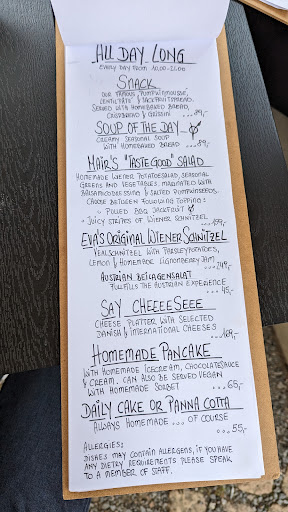 ALL DAY LONG
EVERY DAY FROM 10.00-21.00
SNACK
OUR FAMOUS "PUMPKINMOUSSE,
LENTIL PATÉ" & JACKFRUITSPREAD.
SERVED WITH HOMEBAKED BREAD,
CRISPBREAD & GRISSINI
...89,-
SOUP OF THE DAY
CREAMY SEASONAL SOUP
WITH HOMEBAKED BREAD ...89,-
MAIR'S "TASTE GOOD" SALAD
HOMEMADE WIENER POTATOESALAD, SEASONAL
GREENS AND VEGETABLES MARINATED WITH
BALSAMICODRESSING & SALTED PUMPKINSEEDS.
CHOOSE BETWEEN FOLLOWING TOPPING:
° PULLED BBQ JACKFRUIT
° JUICY STRIPES OF WIENER SCHNITZEL
EVA'S ORIGINAL WIENER SCHNITZEL
VEALSCHNITZEL WITH PARSLEYPOTATOES,
LEMON & HOMEMADE LIGNONBERRY JAM
...249,-
AUSTRIAN BEILAGENSALAT
FULLFILLS THE AUSTRIAN EXPERIENCE
...45,-
SAY CHEEEESEEE
CHEESE PLATTER WITH SELECTED
DANISH & INTERNATIONAL CHEESES
...169,-
HOMEMADE PANCAKE
WITH HOMEMADE ICECREAM, CHOCOLATESAUCE
& CREAM. CAN ALSO BE SERVED VEGAN
WITH HOMEMADE SORBET ...65,-
DAILY CAKE OR PANNA COTTA
ALWAYS HOMEMADE ... OF COURSE
...55,-
ALLERGIES:
DISHES MAY CONTAIN ALLERGENS, IF YOU HAVE
ANY DIETRY REQUIREMENTS PLEASE SPEAK
TO A MEMBER OF STAFF.